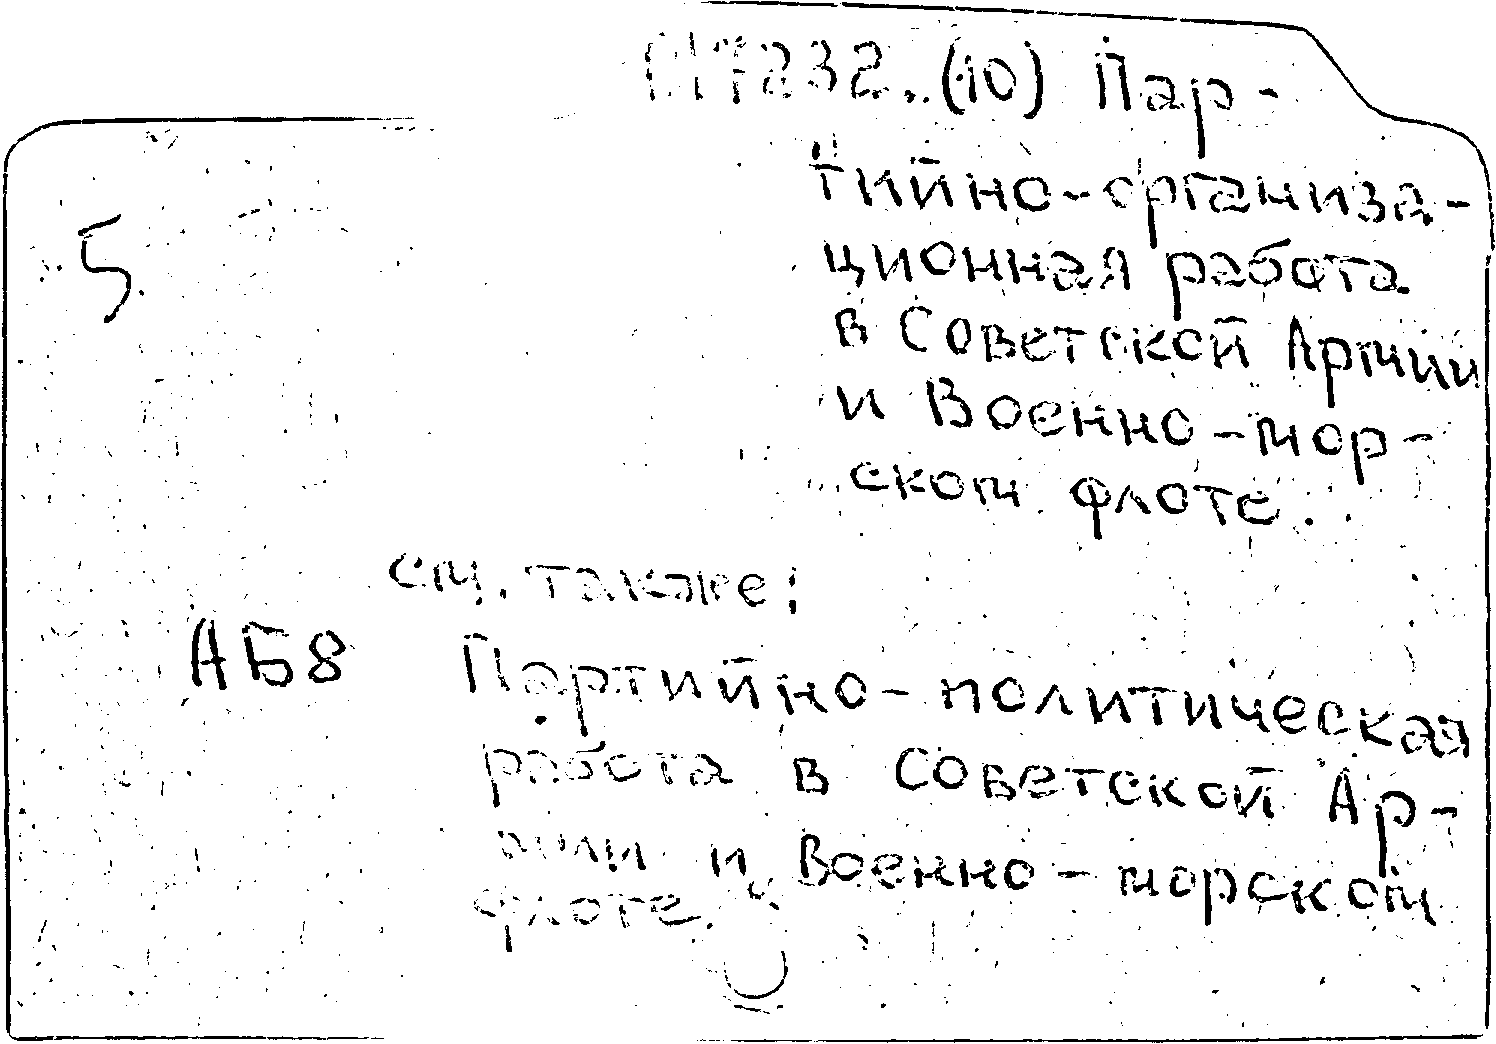 П7232. (10) Пар-
тийно-организа-
ционная работа
в Советской Армии
и Военно-мор-
ском флоте.
5
см. также:
АБ8 Партийно-политическая
работа в Советской Ар-
мии и Военно-морском
флоте.